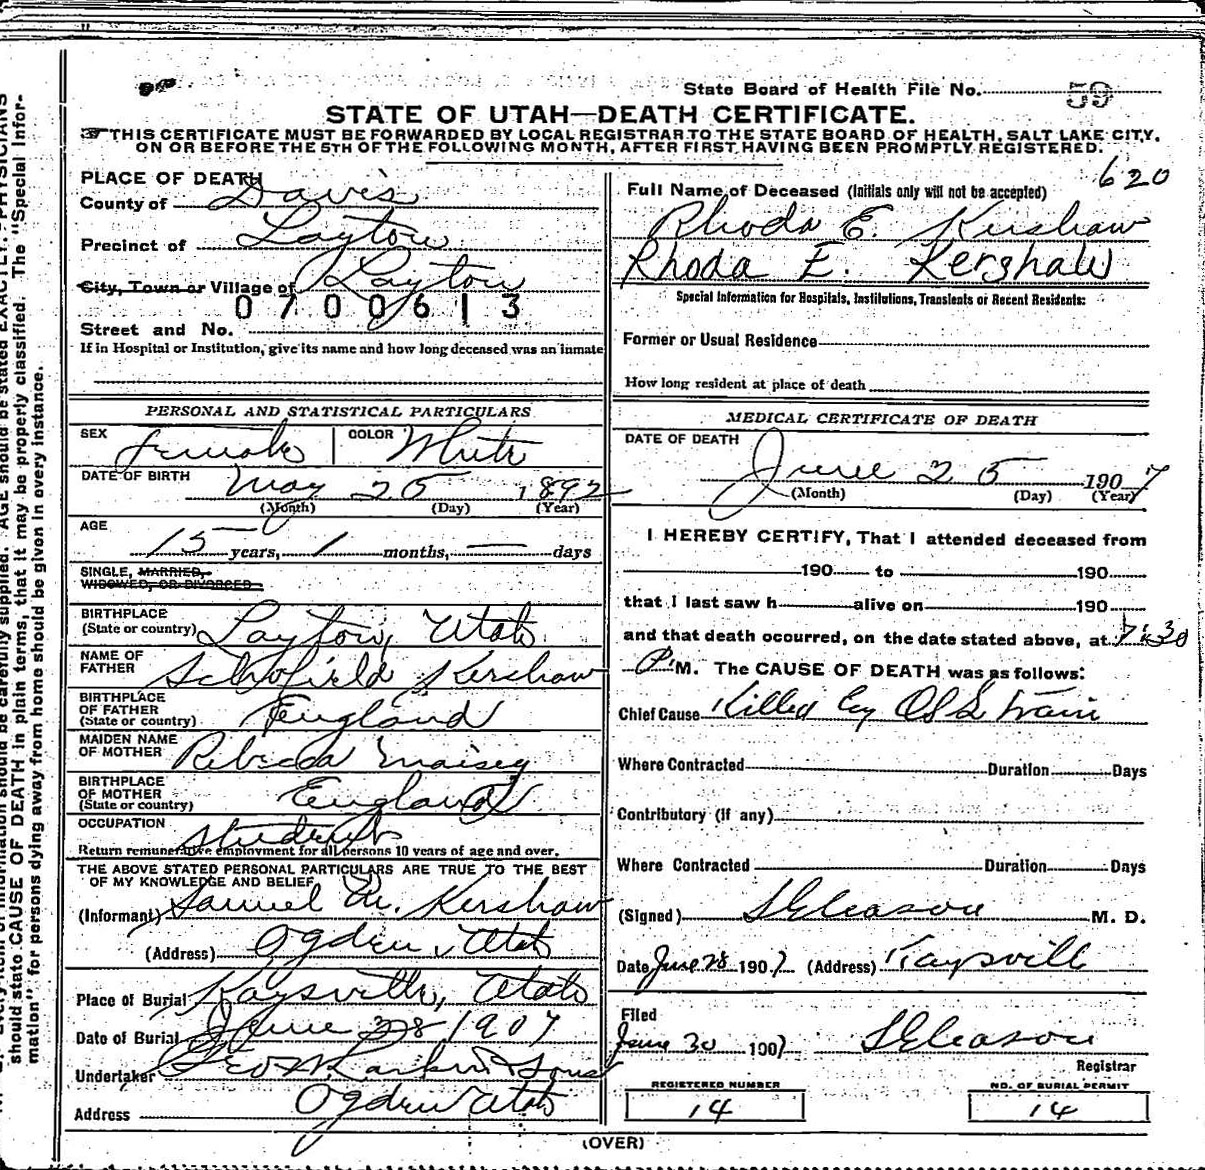 State Board of Health File No. 59
STATE OF UTAH—DEATH CERTIFICATE.
THIS CERTIFICATE MUST BE FORWARDED BY LOCAL REGISTRAR TO THE STATE BOARD OF HEALTH, SALT LAKE CITY,
ON OR BEFORE THE 5TH OF THE FOLLOWING MONTH, AFTER FIRST HAVING BEEN PROMPTLY REGISTERED.
620
PLACE OF DEATH
County of Davis
Precinct of Layton
City, Town or Village of Layton
0700613
Street and No.
If in Hospital or Institution, give its name and how long deceased was an inmate
PERSONAL AND STATISTICAL PARTICULARS
SEX Female COLOR White
DATE OF BIRTH May 25 1892
(Month) (Day) (Year)
AGE 15 years, 1 months, — days
SINGLE, MARRIED,
WIDOWED, OR DIVORCED
BIRTHPLACE
(State or country) Layton, Utah
NAME OF
FATHER Schofield Kershaw
BIRTHPLACE
OF FATHER
(State or country) England
MAIDEN NAME
OF MOTHER Rebecca Maisey
BIRTHPLACE
OF MOTHER
(State or country) England
OCCUPATION Student
Return remunerative employment for all persons 10 years of age and over.
THE ABOVE STATED PERSONAL PARTICULARS ARE TRUE TO THE BEST
OF MY KNOWLEDGE AND BELIEF
(Informant) Samuel M. Kershaw
(Address) Ogden, Utah
Place of Burial Kaysville, Utah
Date of Burial June 28 1907
Undertaker Geo W Larkin & Sons
Address Ogden Utah
Full Name of Deceased (Initials only will not be accepted)
Rhoda E. Kershaw
Rhoda E. Kershaw
Special Information for Hospitals, Institutions, Transients or Recent Residents:
Former or Usual Residence
How long resident at place of death
MEDICAL CERTIFICATE OF DEATH
DATE OF DEATH
June 25 1907
(Month) (Day) (Year)
I HEREBY CERTIFY, That I attended deceased from
190 to 190
that I last saw h alive on 190
and that death occurred, on the date stated above, at 7:30
P M. The CAUSE OF DEATH was as follows:
Chief Cause Killed by OSL train
Where Contracted Duration Days
Contributory (if any)
Where Contracted Duration Days
(Signed) S Gleason M. D.
Date June 28 1907 (Address) Kaysville
Filed
June 30 1907 S Gleason
Registrar
REGISTERED NUMBER
14
NO. OF BURIAL PERMIT
14
(OVER)
should state CAUSE OF DEATH in plain terms, that it may be properly classified. The "Special Infor-
mation" for persons dying away from home should be given in every instance.